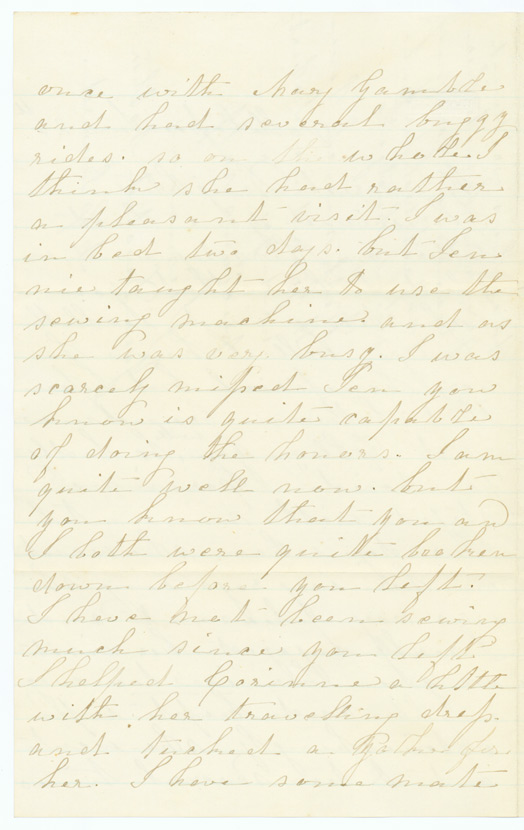 once with Mary Gamble
and had several buggy
rides. so on the whole I
think she had rather
a pleasant visit. I was
in bed two days. but Jen
nie taught her to use the
sewing machine. and as
she was very busy. I was
scarcely missed Jen you
know is quite capable
of doing the honors. I am
quite well now. but
you know that you and
I both were quite broken
down before you left.
I have not been sewing
much since you left
I helped Corinne a little
with her travelling dress.
and tucked a for
her. I have some mate